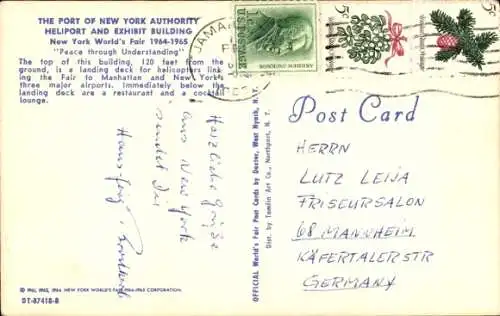 THE PORT OF NEW YORK AUTHORITY
HELIPORT AND EXHIBIT BUILDING
New York World's Fair 1964-1965
"Peace through Understanding"
The top of this building, 120 feet from the
ground, is a landing deck for helicopters link-
ing the Fair to Manhattan and New York's
three major airports. Immediately below the
landing deck are a restaurant and a cocktail
lounge.
Herzliche Grüße
aus New York
sendet Dir
Hans-Jörg
© 1961, 1962, 1964 NEW YORK WORLD'S FAIR 1964-1965 CORPORATION
DT-87418-B
OFFICIAL World's Fair Post Cards by Dexter, West Nyack, N.Y.
Dist. by Tomlin Art Co., Northport, N. Y.
JAMAICA
ANDREW JACKSON
5c
5c
Post Card
HERRN
LUTZ LEIJA
FRISEURSALON
68 MANNHEIM
KÄFERTALERSTR
GERMANY